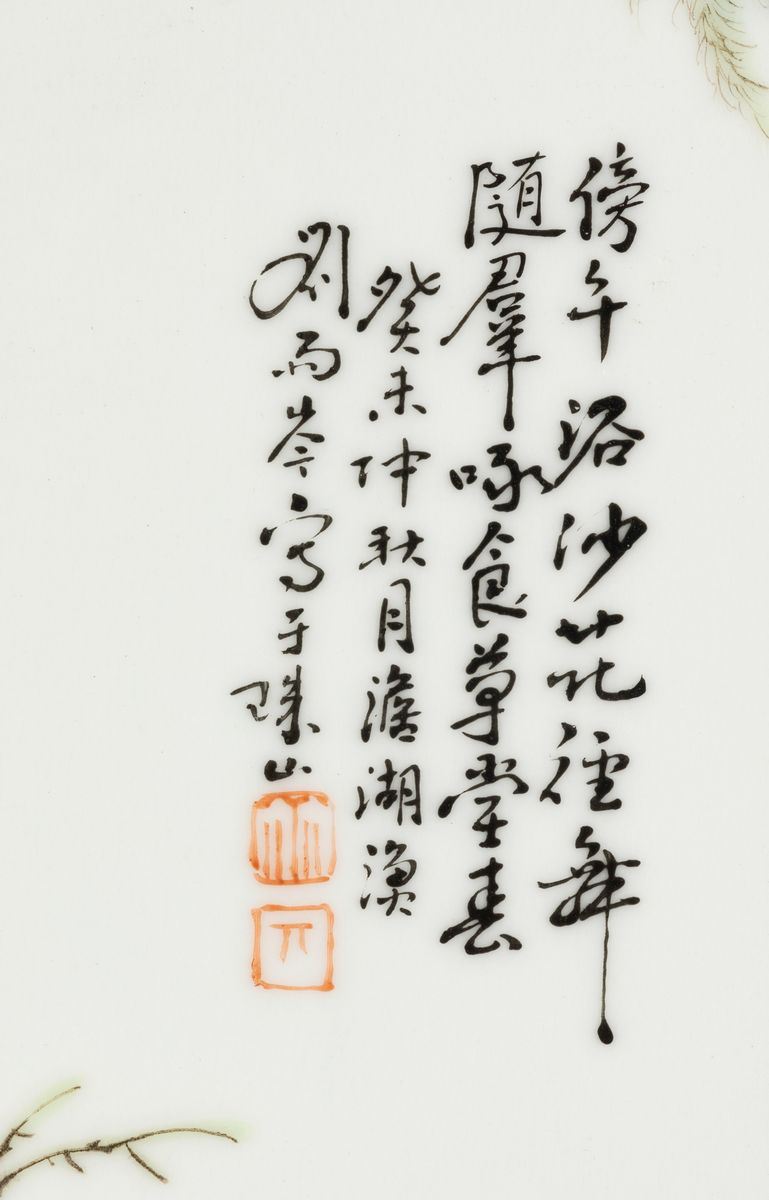 傍午浴沙花径舞
随羣啄食草堂春
癸未仲秋月澹湖漁
劉雨岑寫于珠山
竹